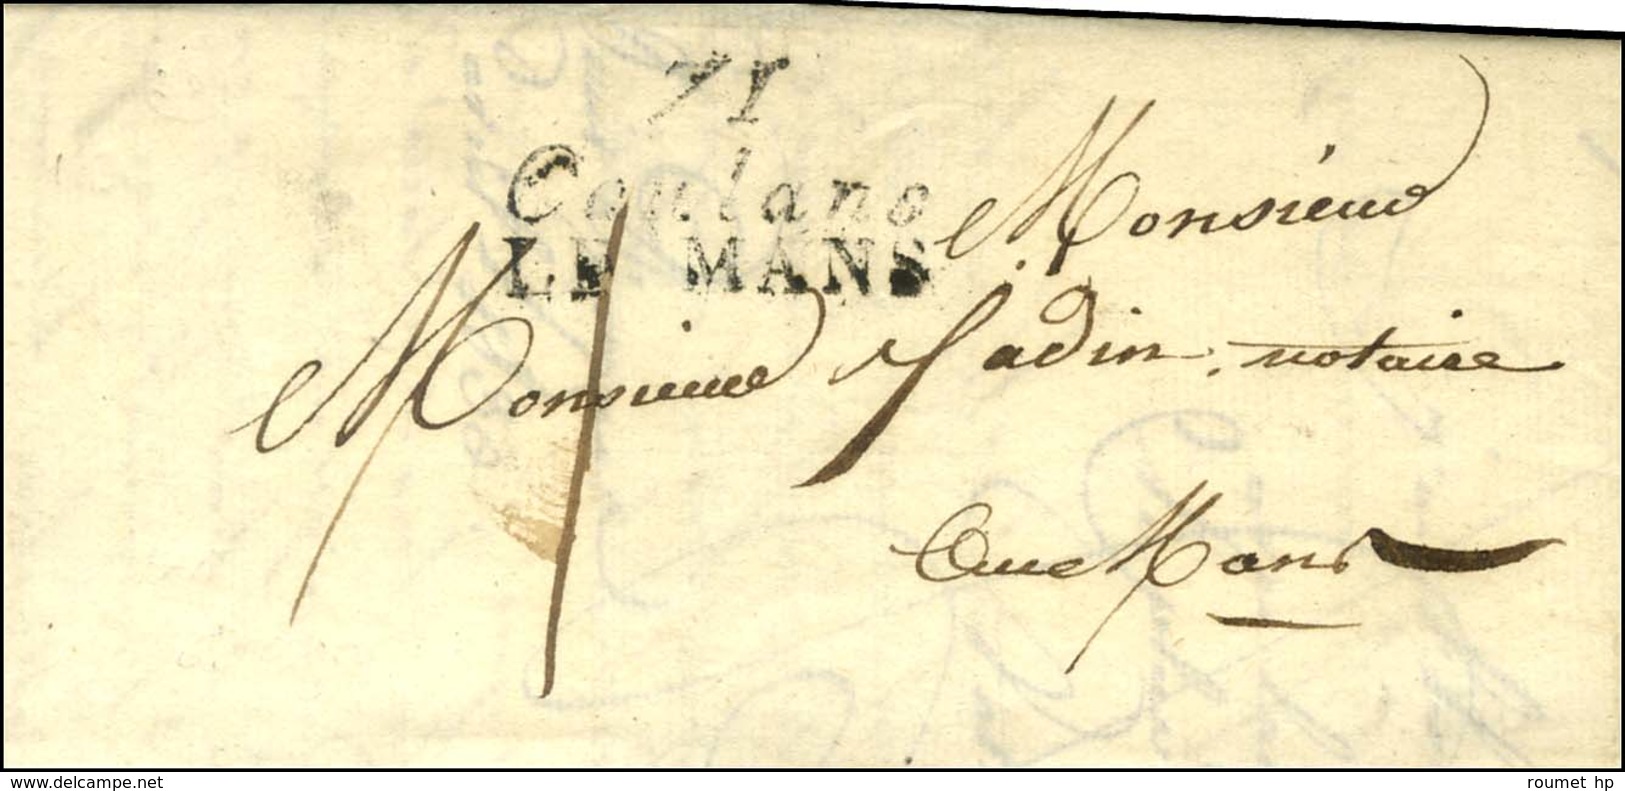 71
Coulans
LE MANS
Monsieur
Monsieur Jadin, notaire
Au Mans
www.delcampe.net
roumet hp